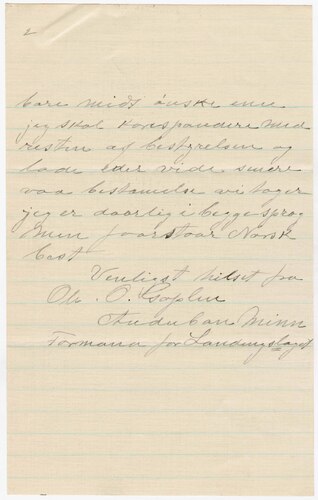 2
bare mids önske enn
jeg skal korespondere med
resten af bestyrelsen og
lade eder vide senere
vaa bestamelse vi tager
jeg er daarlig i begge sprog
Men foorstaar Norsk
best
Venligst hilset fra
Ole. O.
Audubon Minn
Formand for Landingslaget